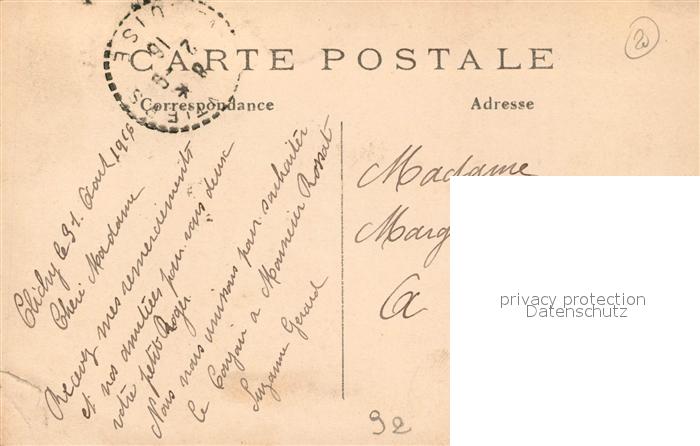 CARTE POSTALE
Correspondance
Adresse
20
Clichy le 31 Aout 1916
Cheri Madame
Recevez mes remerciements
et nos amitiées pour vous deux
votre petit Roger
Nous nous unissons pour souhaiter
le bonjour a Monsieur Rossat
Suzanne Gerard
Madame
Marg
A
92
privacy protection
Datenschutz